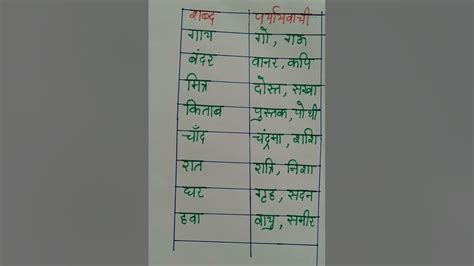 शब्द पर्यायवाची
गाय गो, गऊ
बंदर वानर, कपि
मित्र दोस्त, सखा
किताब पुस्तक, पोथी
चाँद चंद्रमा, शशि
रात रात्रि, निशा
घर गृह, सदन
हवा वायु, समीर